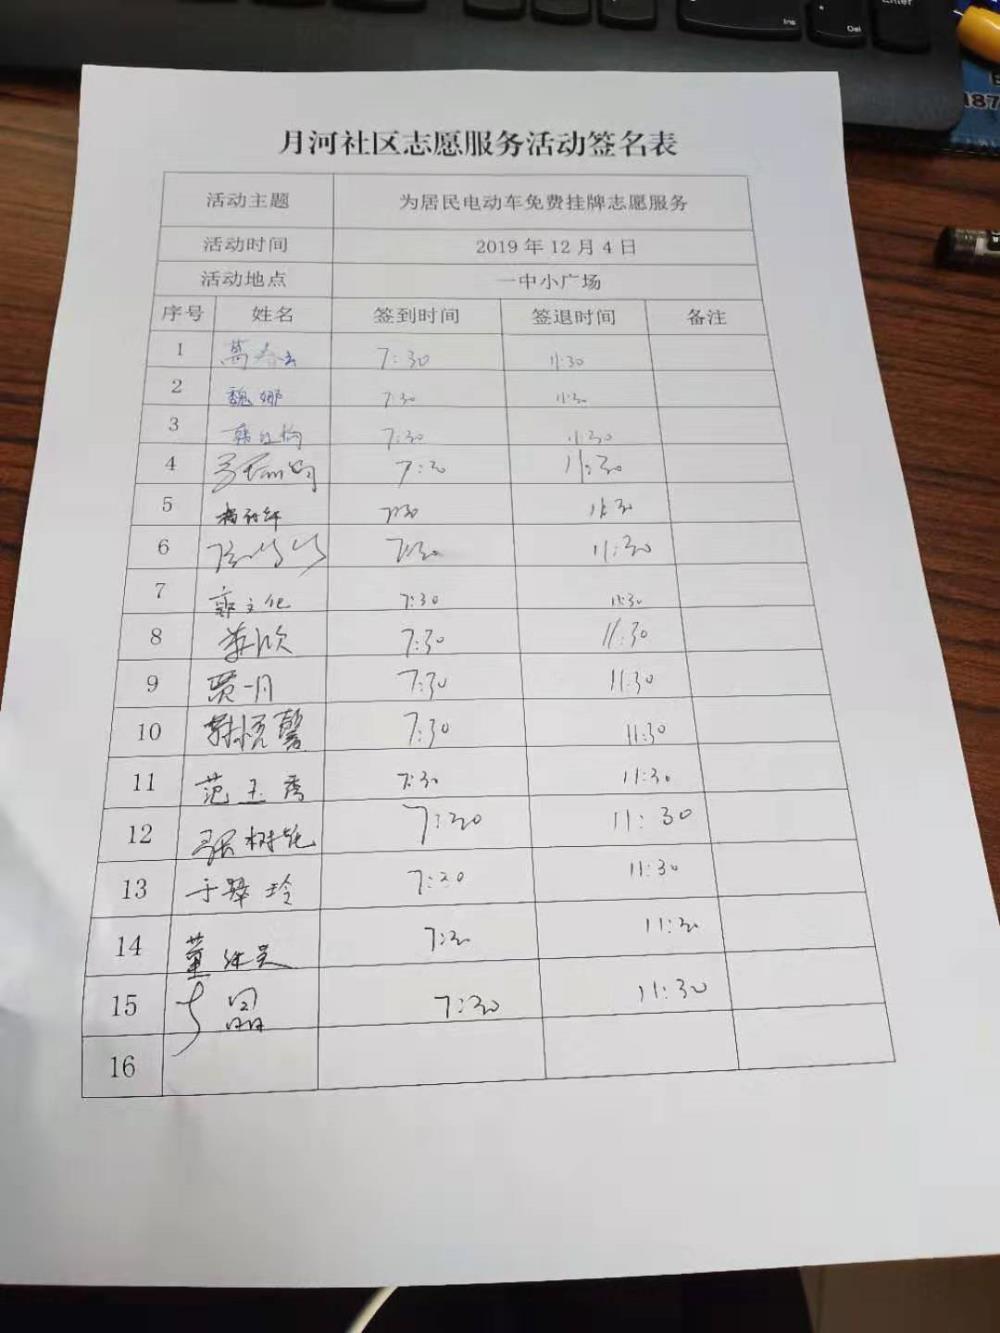 Ins
Del
Enter
187
月河社区志愿服务活动签名表
活动主题 为居民电动车免费挂牌志愿服务
活动时间 2019 年 12 月 4 日
活动地点 一中小广场
序号 姓名 签到时间 签退时间 备注
1 7:30 11:30
2 魏娜 7:30 11:30
3 7:30 11:30
4 7:30 11:30
5 7:30 11:30
6 7:30 11:30
7 郭文化 7:30 11:30
8 7:30 11:30
9 贾一月 7:30 11:30
10 7:30 11:30
11 范玉秀 7:30 11:30
12 7:30 11:30
13 7:30 11:30
14 董 7:30 11:30
15 晶 7:30 11:30
16